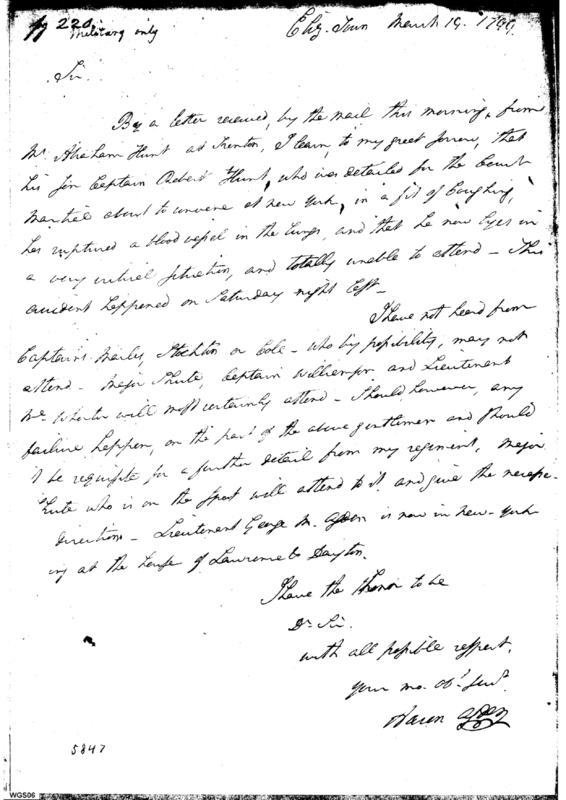 220
Military only
Eliz. Town March 19. 1799
Sir.
By a letter received, by the mail this morning, from
Mr. Abraham Hunt at Trenton, I learn, to my great sorrow, that
his son Captain Robert Hunt, who was detailed for the Court
Martial about to convene at New York, in a fit of Coughing,
has ruptured a blood vessel in the lungs, and that he now lyes in
a very critical situation, and totally unable to attend – This
accident happened on Saturday night last –
I have not heard from
Captains Stockton or Cole – who by possibility, may not
attend – Major Shute, Captain Williamson and Lieutenant
Mc Whorter will most certainly attend – Should however, any
failure happen, on the part of the above gentlemen and should
it be requisite for a further detail from my regiment, Major
Shute who is on the spot will attend to it and give the necessa-
directions – Lieutenant George M. Ogden is now in New-York
ing at the house of Lawrence & Dayton.
I have the honor to be
Dr. Sir.
with all possible respect,
your mo. obt. servt.
Aaron Ogden
5847
WGS06